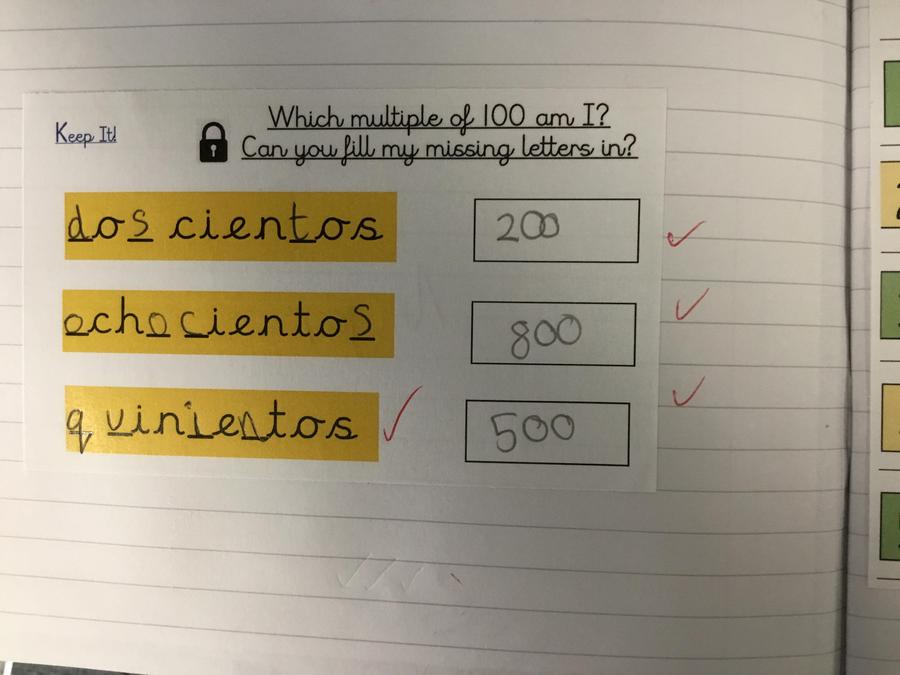 Keep It!
Which multiple of 100 am I?
Can you fill my missing letters in?
dos cientos
200
ochocientos
800
quinientos
500